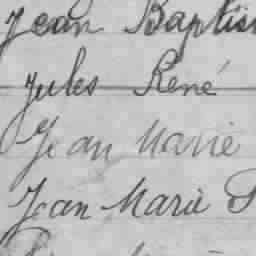 Jean Baptis
Jules René
Jean Marie
Jean Marie